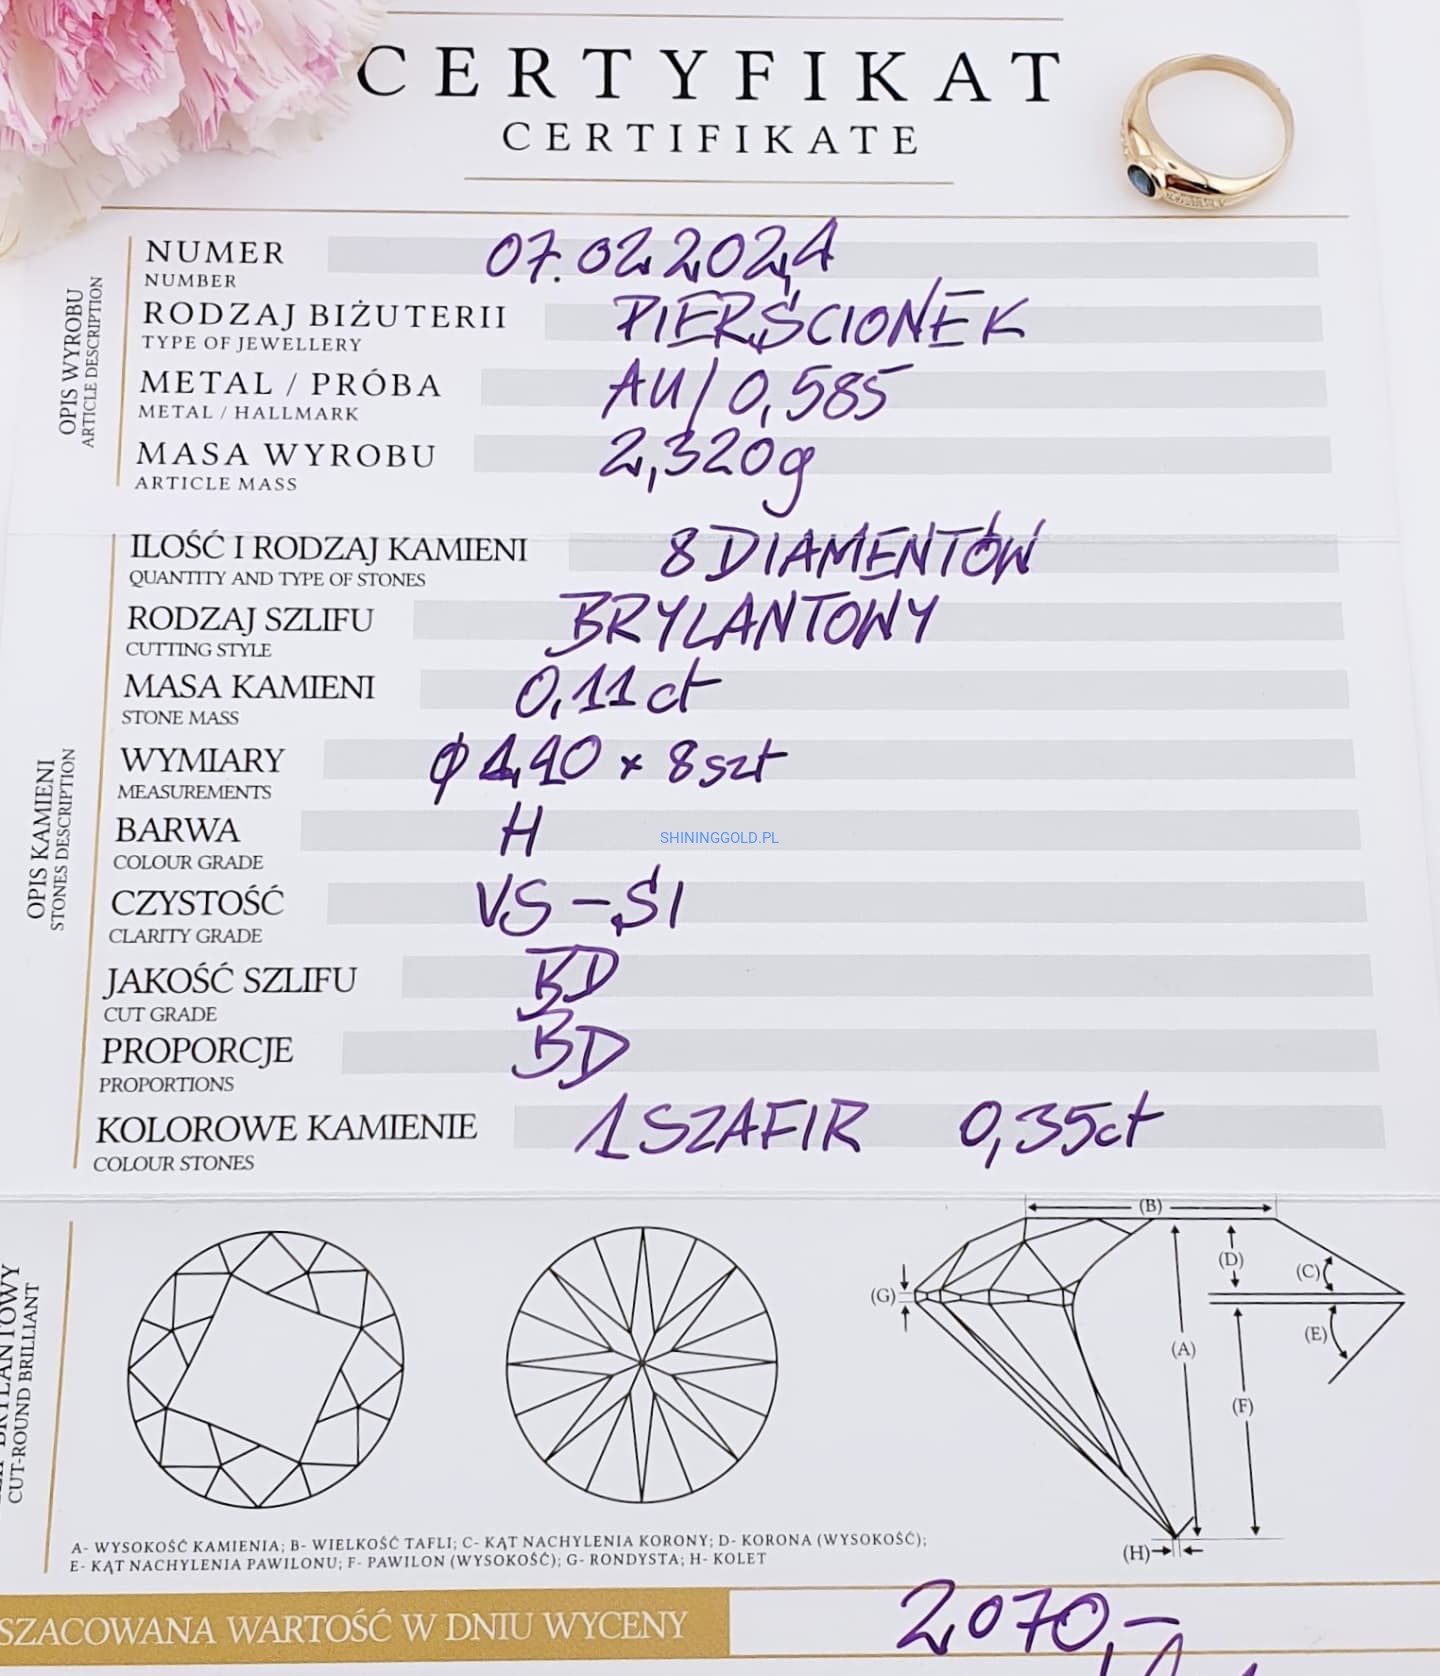 CERTYFIKAT
CERTIFIKATE
OPIS WYROBU
ARTICLE DESCRIPTION
NUMER 07.02.2024
NUMBER
RODZAJ BIŻUTERII PIERŚCIONEK
TYPE OF JEWELLERY
METAL / PRÓBA AU/0,585
METAL / HALLMARK
MASA WYROBU 2,320g
ARTICLE MASS
OPIS KAMIENI
STONES DESCRIPTION
ILOŚĆ I RODZAJ KAMIENI 8 DIAMENTÓW
QUANTITY AND TYPE OF STONES
RODZAJ SZLIFU BRYLANTOWY
CUTTING STYLE
MASA KAMIENI 0,11ct
STONE MASS
WYMIARY × 8szt
MEASUREMENTS
BARWA H
SHININGGOLD.PL
COLOUR GRADE
CZYSTOŚĆ VS-SI
CLARITY GRADE
JAKOŚĆ SZLIFU BD
CUT GRADE
PROPORCJE BD
PROPORTIONS
KOLOROWE KAMIENIE 1 SZAFIR 0,35ct
COLOUR STONES
CUT-ROUND BRILLIANT
(B)
(D)
(C)
(G)
(E)
(A)
(F)
(H)
A- WYSOKOŚĆ KAMIENIA; B- WIELKOŚĆ TAFLI; C- KĄT NACHYLENIA KORONY; D- KORONA (WYSOKOŚĆ);
E- KĄT NACHYLENIA PAWILONU; F- PAWILON (WYSOKOŚĆ); G- RONDYSTA; H- KOLET
SZACOWANA WARTOŚĆ W DNIU WYCENY 2070,-